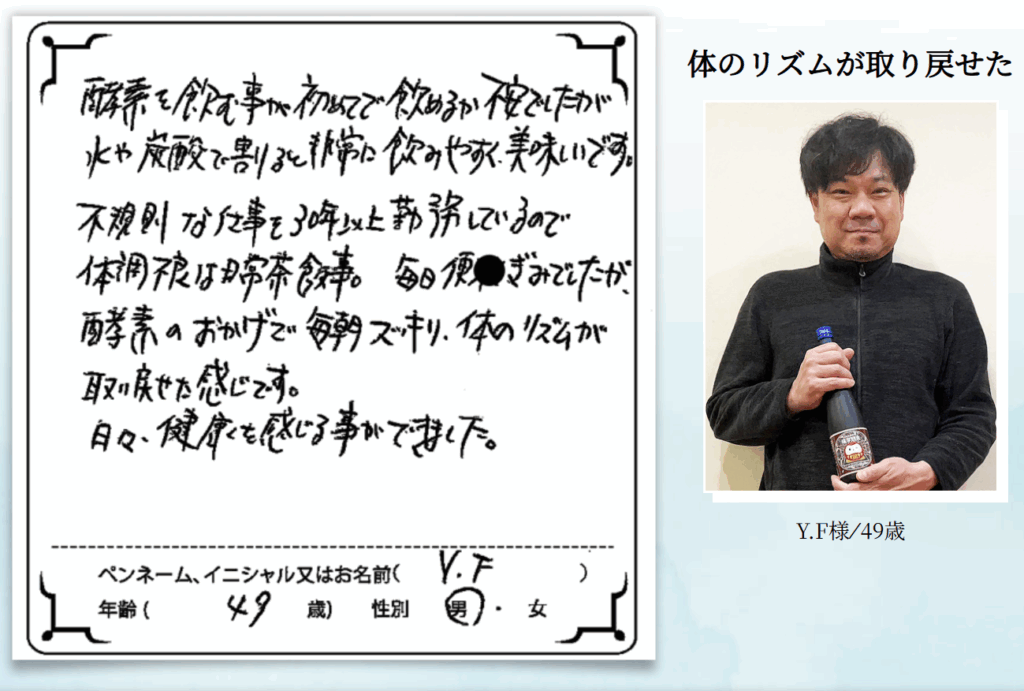 酵素を飲む事が初めてで飲めるか不安でしたが
水や炭酸で割ると非常に飲みやすく、美味しいです。
不規則な仕事を30年以上勤務しているので
体調不良は日常茶飯事。毎日便●ぎみでしたが、
酵素のおかげで毎朝スッキリ、体のリズムが
取り戻せた感じです。
日々、健康を感じる事ができました。
ペンネーム、イニシャル又はお名前( Y.F )
年齢( 49 歳) 性別 男・女
体のリズムが取り戻せた
Y.F様/49歳